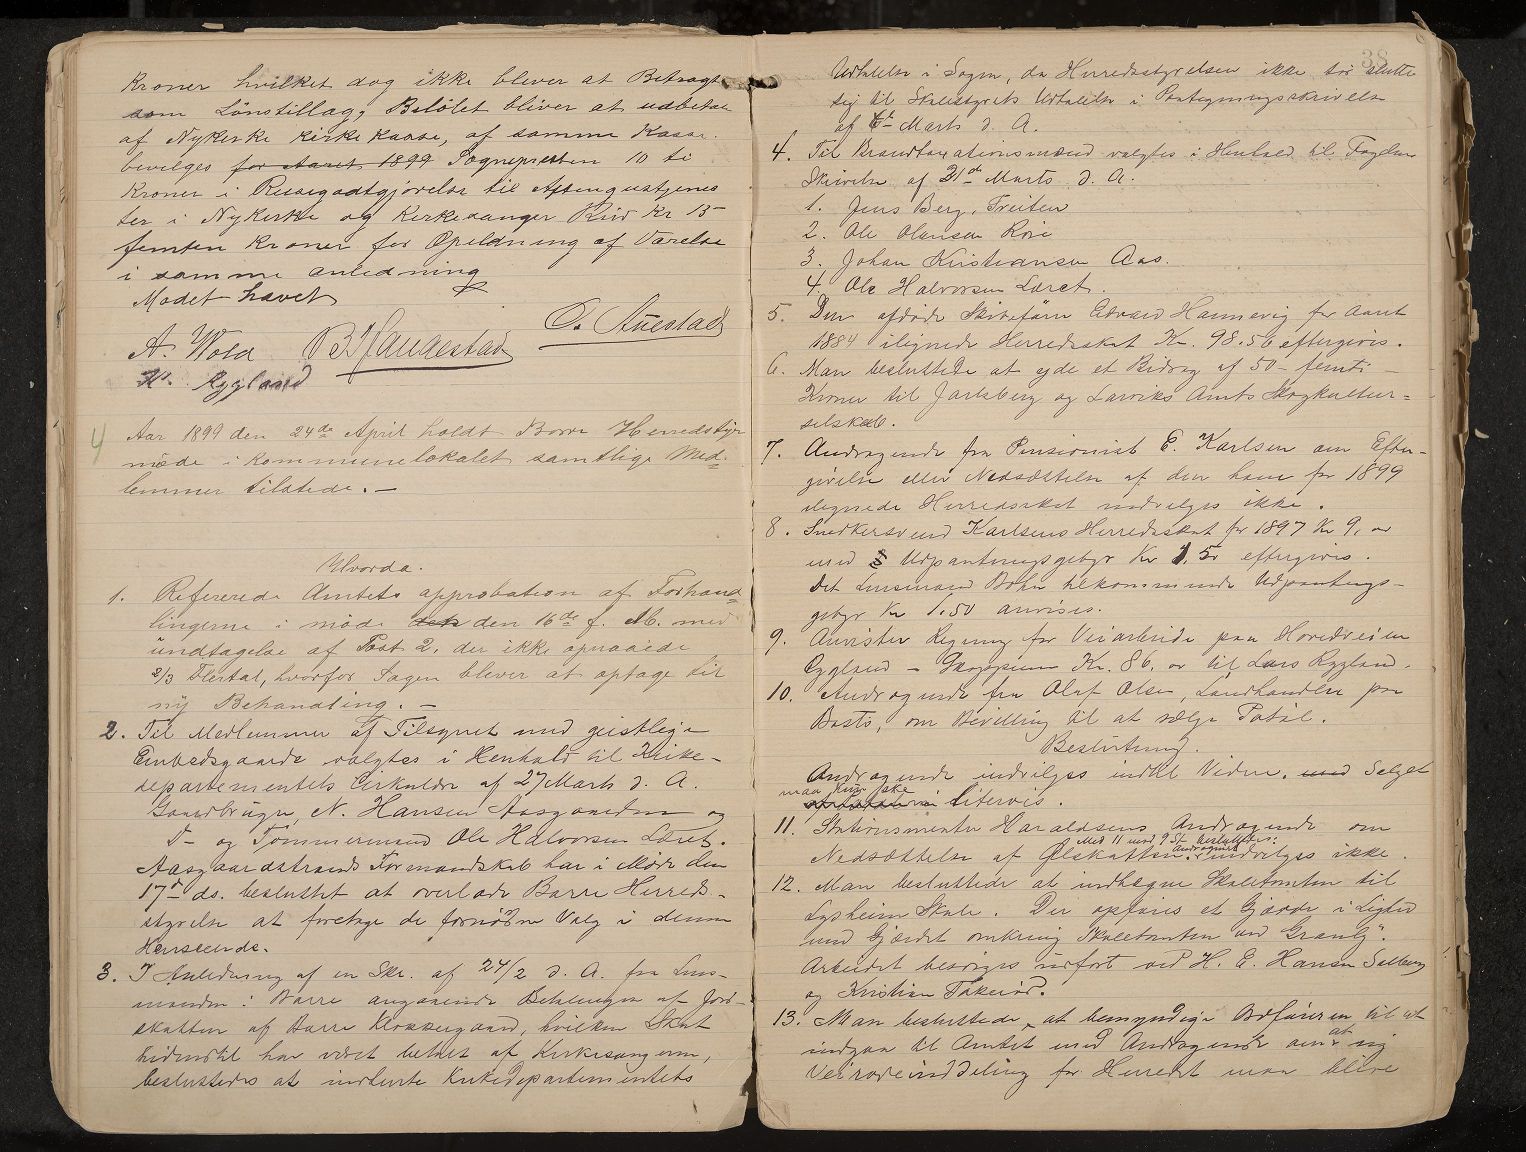 Kroner hvilket dog ikke bliver at Betragte
som Lönstillæg, Belölet bliver at udbetale
af Nykirke kirkekasse, af samme Kasse
bevilges for Aaret 1899 Sognepresten 10 ti
Kroner i Reisegodtgjörelse til Aftengudstjenes
ter i Nykirke og Kirkesanger Riis Kr 15
femten Kroner for Opeldning af Værelse
i samme anledning
Mödet hævet
A. Wold B. Haugestad O. Auestad
K. Rygland
4 Aar 1899 den 24de April holdt Borre Herredsstyr
möde i kommunelokalet samtlige Med-
lemmer tilstede. —
Hvorda.
1. Refererede Amtets approbation af Forhand
lingerne i möde den den 16de f. M. med
undtagelse af Post 2, der ikke opnaaede
2/3 Flertal, hvorfor Sagen blever at optage til
ny Behandling. —
2. Til Medlemmer af Tilsynet med geistlige
Embedsgaarde valgtes i Henhold til Kirke-
departementets Cirkulære af 27 Marts d. A.
Gaardbruger N. Hansen Aasgaarden og
T- og Tömmermand Ole Halvorsen Löret.
Aasgaardstrands Formandskab har i Möde den
17de ds. besluttet at overlade Borre Herreds-
styrelse at foretage de fornödne Valg i denne
Henseende.
3. I Anledning af en Skr. af 24/2 d. A. fra Lens-
manden i Borre angaaende Betalingen af Jord-
skatten af Borre Klokkergaard, hvilken Skat
hidindtil har været betalt af Kirkesangeren,
besluttedes at indhente Kirkedepartementets
38
Udtalelse i Sagen, da Herredsstyrelsen ikke tör slutte
sig til Skolestyrets Udtalelse i Paategningsskrivelse
af Marts d. A.
4. Til Brandtaxationsmænd valgtes i Henhold til Fogdens
Skrivelse af 21de Marts d. A.
1. Jens Berg, Freiten
2. Ole Olausen Rore
3. Johan Kristiansen Aas.
4. Ole Halvorsen Löret.
5. Den afdöde Skibsförer Edvard Hannevig for Aaret
1884 ilignede Herredsskat Kr. 98.56 eftergives.
6. Man besluttede at yde et Bidrag af 50 - femti -
Kroner til Jarlsberg og Larviks Amts Skogkultur=
selskab.
7. Andragende fra Pensionist E. Karlsen om Efter-
givelse eller Nedsættelse af den ham for 1899
ilignede Herredsskat indvilges ikke.
8. Snedkersvend Karlsens Herredsskat for 1897 Kr 9, or
med Udpantningsgebyr Kr 1,50 eftergives.
Det Lensmand Bohn tilkommende Udpantnings-
gebyr Kr 1.50 anvises.
9. Anvistes Regning for Veiarbeide paa Hovedveien
Rygland - Skoppum Kr. 86, or til Lars Rygland.
10. Andragende fra Olaf Olsen, Landhandler paa
Bastö, om Bevilling til at sælge Fatöl.
Beslutning.
Andragende indvilges indtil Videre. med Salget
maa kun ske
litervis.
11. Stationsmester Haraldsens Andragende om
Med 11 mod 9 St. besluttedes:
Nedsættelse af Ölskatten. Andraget indvilges ikke.
12. Man besluttede at indhegne Skoletomten til
Lysheim Skole. Der opföres et Gjærde i Lighed
med Gjærdet omkring Skoletomten ved Granly.
Arbeidet besörges udfört ved H. E. Hansen Solberg
og Kristian Fakeröd.
13. Man besluttede, at bemyndige Ordföreren til at
indgaa til Amtet med Andragende om at ny
Veirodeinddeling for Herredet maa blive